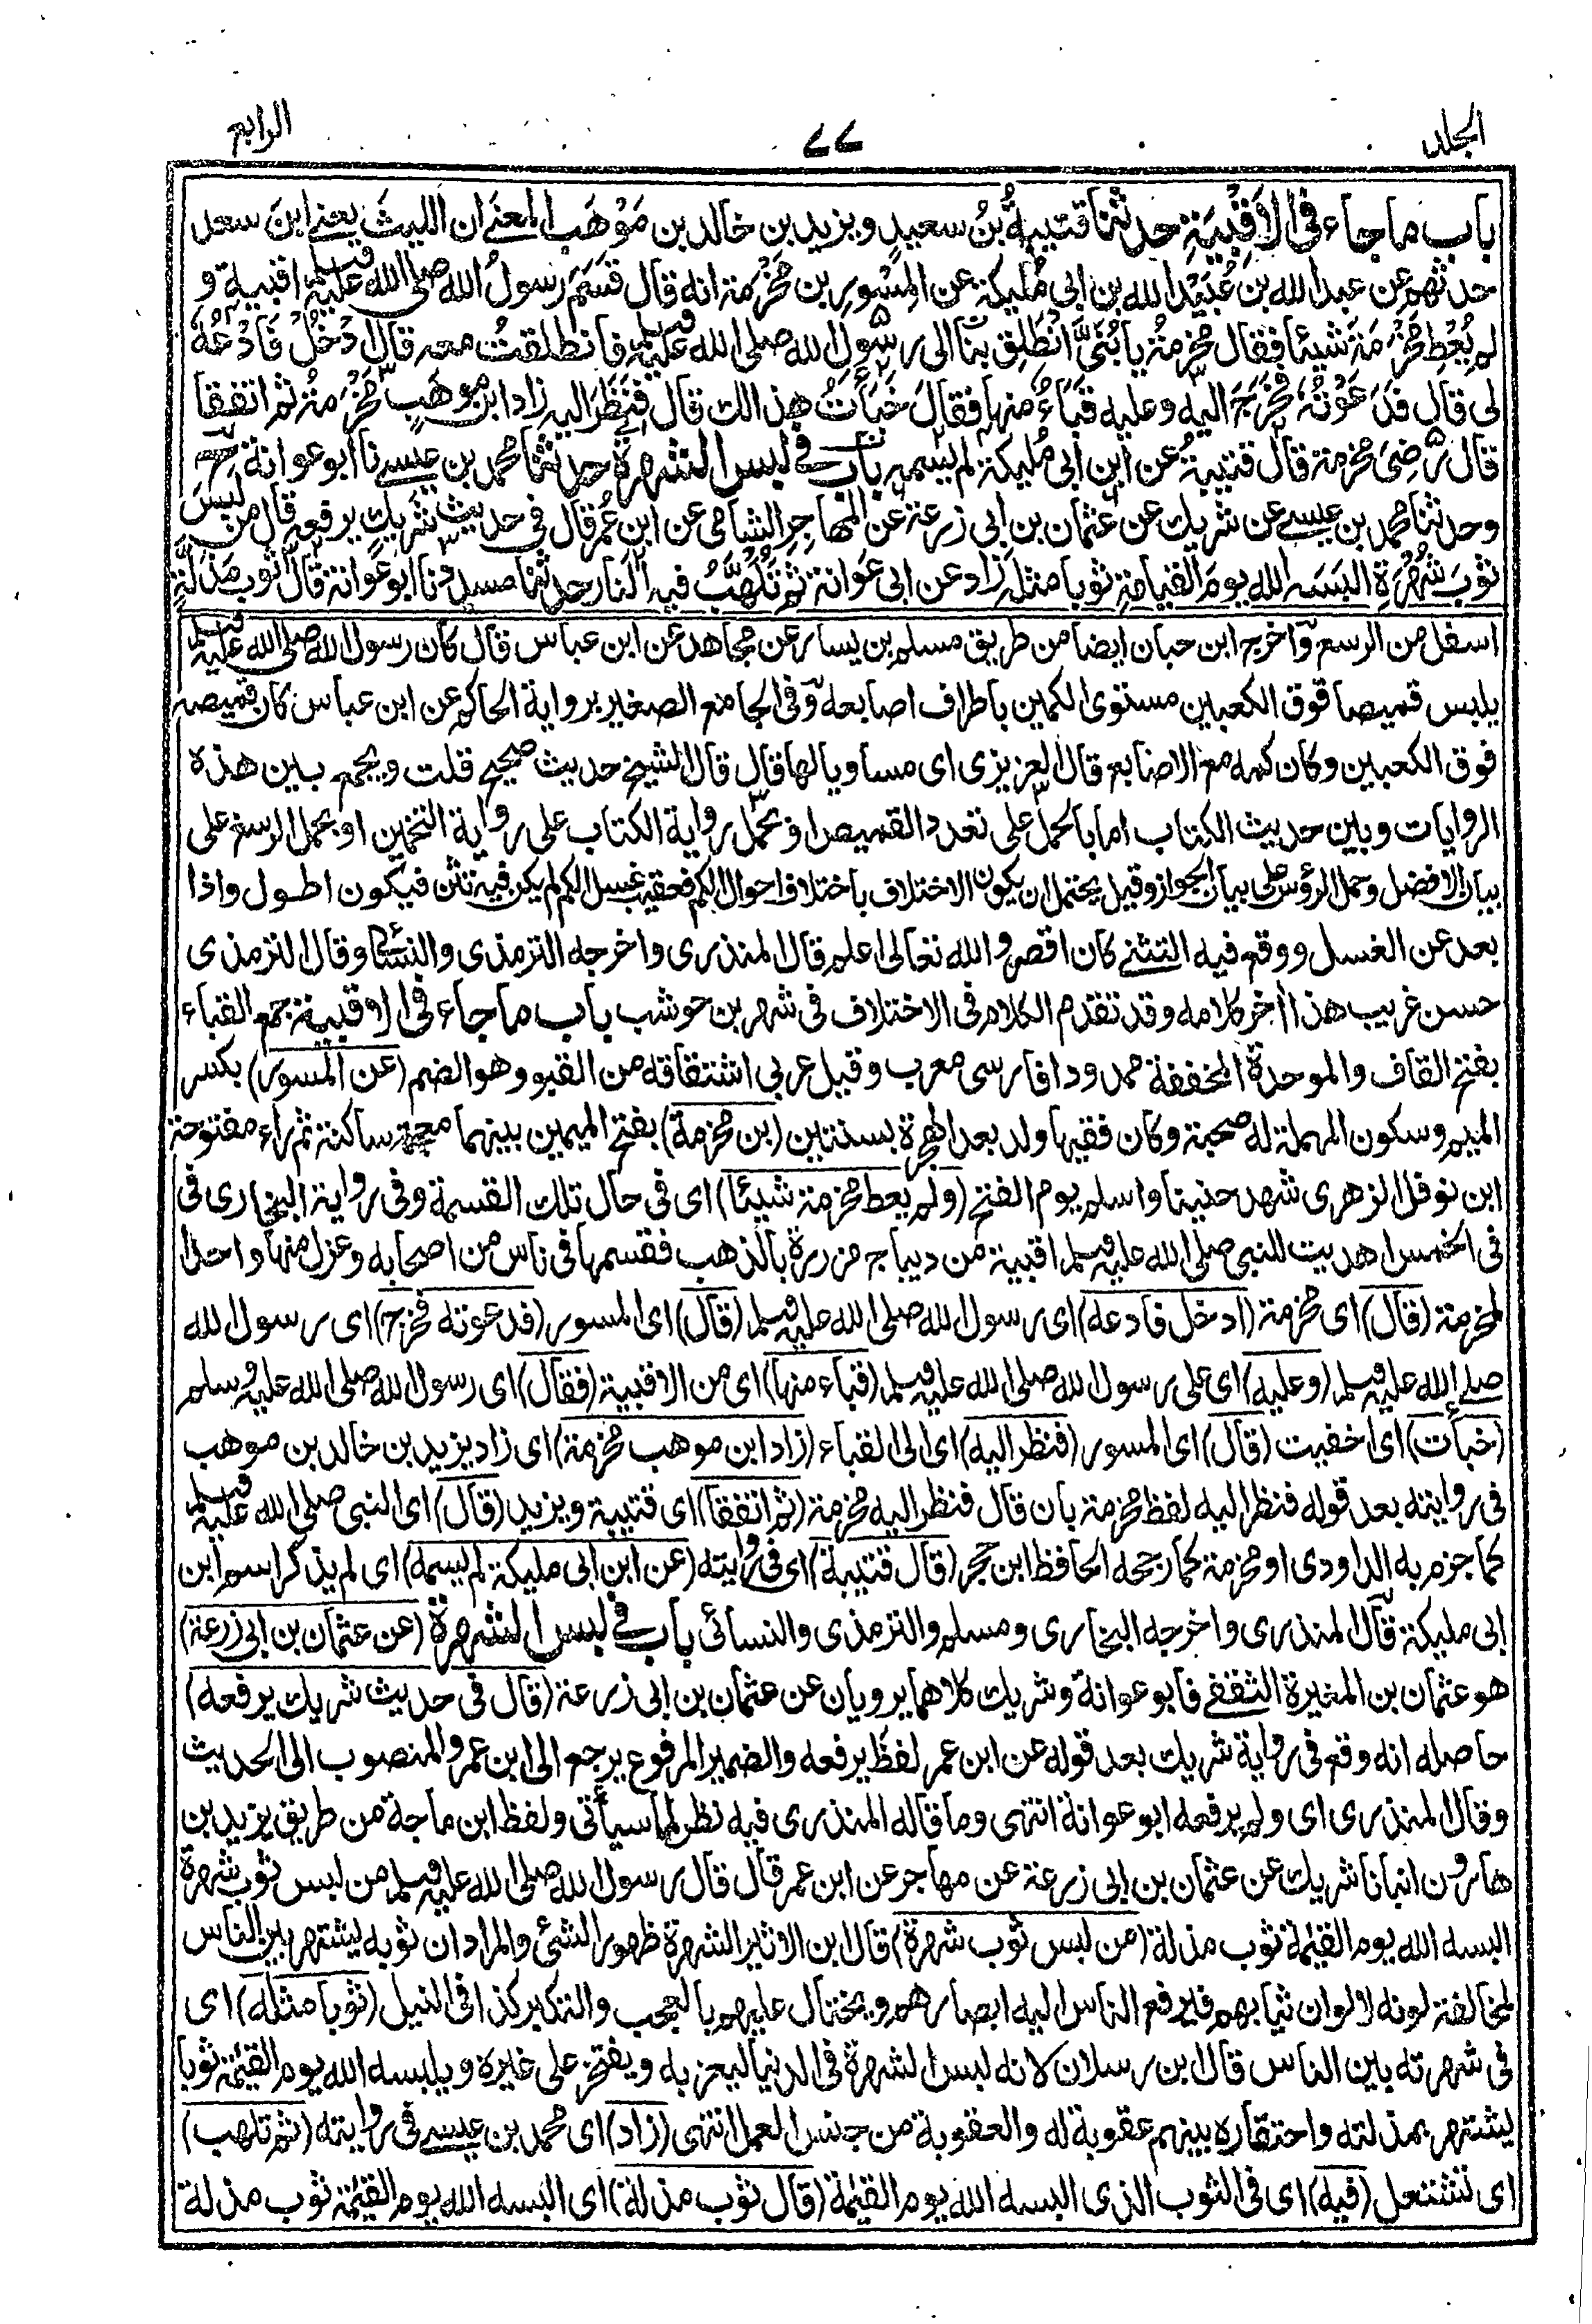 الجلد
٧٧
الرابع
باب ما جاء في الأَقْبِيَةِ حدثنا قتيبةُ بنُ سعيدٍ ويزيد بن خالد بن مَوْهَب المعنے ان الليثَ يعنے ابنَ سعد
حدثهم عن عبد الله بنِ عُبَيْد الله بن ابى مُليكة عن المِسْوِر بن مَخْرَمة انه قال قَسَمَ رسولُ الله صلى الله عليه وسلم اقبيةً و
لم يُعْطِ مَخْرَمَةَ شيئا فقال مَخْرمةُ يا بُنَيَّ انْطَلِقْ بنا الى رسول الله صلى الله عليه وسلم فانطلقتُ معه قال ادْخُلْ فَادْعُهُ
لى قال فدَعَوْتُه فخَرَجَ اليه وعليه قَبَاءٌ منها فقالَ خَبَأْتُ هذا لك قال فَنَظَرَ اليه زاد ابن مَوهَبٍ مَخْرَمةُ ثم اتفقا
قال رَضِىَ مخرمة قال قتيبةُ عن ابن ابى مُليكة لم يسمه باب في لبس الشهرة حدثنا محمد بن عيسے نا ابو عوانة ح
وحدثنا محمد بن عيسے عن شريك عن عثمان بن ابى زرعة عن المهاجِرِ الشامى عن ابن عُمر قال في حديث شريك يرفعه قال من لَبِسَ
ثَوْبَ شُهْرَةٍ البَسَه الله يومَ القيامة ثوبا مثله زاد عن ابى عَوَانة ثم تَلَهَّبُ فيه النار حدثنا مسدد نا ابو عوانة قال ثوبَ مَذَلَّةٍ
اسفل من الرسغ واخرج ابن حبان ايضا من طريق مسلم بن يسار عن مجاهد عن ابن عباس قال كان رسول الله صلى الله عليه وسلم
يلبس قميصا فوق الكعبين مستوى الكمين باطراف اصابعه وفى الجامع الصغير برواية الحاكم عن ابن عباس كان قميصه
فوق الكعبين وكان كمه مع الاصابع قال العزيزى اى مساويا لها قال قال الشيخ حديث صحيح قلت ويجمع بين هذه
الروايات وبين حديث الكتاب اما بالحمل على تعدد القميص او بحمل رواية الكتاب على رواية التخمين او بحمل الرسغ على
بيان الافضل وحمل الرؤس على بيان الجواز وقيل يحتمل ان يكون الاختلاف باختلاف احوال الكم فعقيب غسل الكم لم يكن فيه تثن فيكون اطول واذا
بعد عن الغسل ووقع فيه التثنے كان اقصر والله تعالى اعلم قال المنذرى واخرجه الترمذى والنسائى وقال الترمذى
حسن غريب هذا آخر كلامه وقد تقدم الكلام فى الاختلاف فى شهر بن حوشب باب ما جاء فى الاقبية جمع القباء
بفتح القاف والموحدة المخففة ممدودا فارسى معرب وقيل عربى اشتقاقه من القبو وهو الضم (عن المسور) بكسر
الميم وسكون المهملة له صحبة وكان فقيها ولد بعد الهجرة بسنتين (بن مخرمة) بفتح الميمين بينهما معجمة ساكنة ثم راء مفتوحة
ابن نوفل الزهرى شهد حنينا واسلم يوم الفتح (ولم يعط مخرمة شيئا) اى فى حال تلك القسمة وفى رواية البخارى فى
فى الخمس اهديت للنبى صلى الله عليه وسلم اقبية من ديباج مزررة بالذهب فقسمها فى ناس من اصحابه وعزل منها واحدا
لمخرمة (قال) اى مخرمة (ادخل فادعه) اى رسول الله صلى الله عليه وسلم (قال) اى المسور (فدعوته فخرج) اى رسول الله
صلے الله عليه وسلم (وعليه) اى على رسول الله صلى الله عليه وسلم (قباء منها) اى من الاقبية (فقال) اى رسول الله صلى الله عليه وسلم
(خبأت) اى اخفيت (قال) اى المسور (فنظر اليه) اى الى القباء (زاد ابن موهب مخرمة) اى زاد يزيد بن خالد بن موهب
فى روايته بعد قوله فنظر اليه لفظ مخرمة بان قال فنظر اليه مخرمة (ثم اتفقا) اى قتيبة ويزيد (قال) اى النبى صلى الله عليه وسلم
كما جزم به الداودى او مخرمة كما رجحه الحافظ ابن حجر (قال قتيبة) اى فى روايته (عن ابن ابى مليكة لم يسمه) اى لم يذكر اسم ابن
ابى مليكة قال المنذرى واخرجه البخارى ومسلم والترمذى والنسائى باب فے لبس الشهرة (عن عثمان بن ابى زرعة)
هو عثمان بن المغيرة الثقفے فابو عوانة وشريك كلاهما يرويان عن عثمان بن ابى زرعة (قال فى حديث شريك يرفعه)
حاصله انه وقع فى رواية شريك بعد قوله عن ابن عمر لفظ يرفعه والضمير المرفوع يرجع الى ابن عمر والمنصوب الى الحديث
وقال المنذرى اى ولم يرفعه ابو عوانة انتهى وما قاله المنذرى فيه نظر لما سيأتى ولفظ ابن ماجة من طريق يزيد بن
هارون انبانا شريك عن عثمان بن ابى زرعة عن مهاجر عن ابن عمر قال قال رسول الله صلى الله عليه وسلم من لبس ثوب شهرة
البسه الله يوم القيٰمة ثوب مذلة (من لبس ثوب شهرة) قال ابن الاثير الشهرة ظهور الشئ والمراد ان ثوبه ليشتهر بين الناس
لمخالفة لونه لالوان ثيابهم فيرفع الناس اليه ابصارهم ويختال عليهم بالعجب والتكبر كذا فى النيل (ثوبا مثله) اى
فى شهرته بين الناس قال ابن رسلان لانه لبس الشهرة فى الدنيا ليعز به ويفتخر على غيره ويلبسه الله يوم القيٰمة ثوبا
يشتهر بمذلته واحتقاره بينهم عقوبة له والعقوبة من جنس العمل انتهى (زاد) اى محمد بن عيسے فى روايته (ثم تلهب)
اى تشتعل (فيه) اى فى الثوب الذى البسه الله يوم القيٰمة (قال ثوب مذلة) اى البسه الله يوم القيٰمة ثوب مذلة